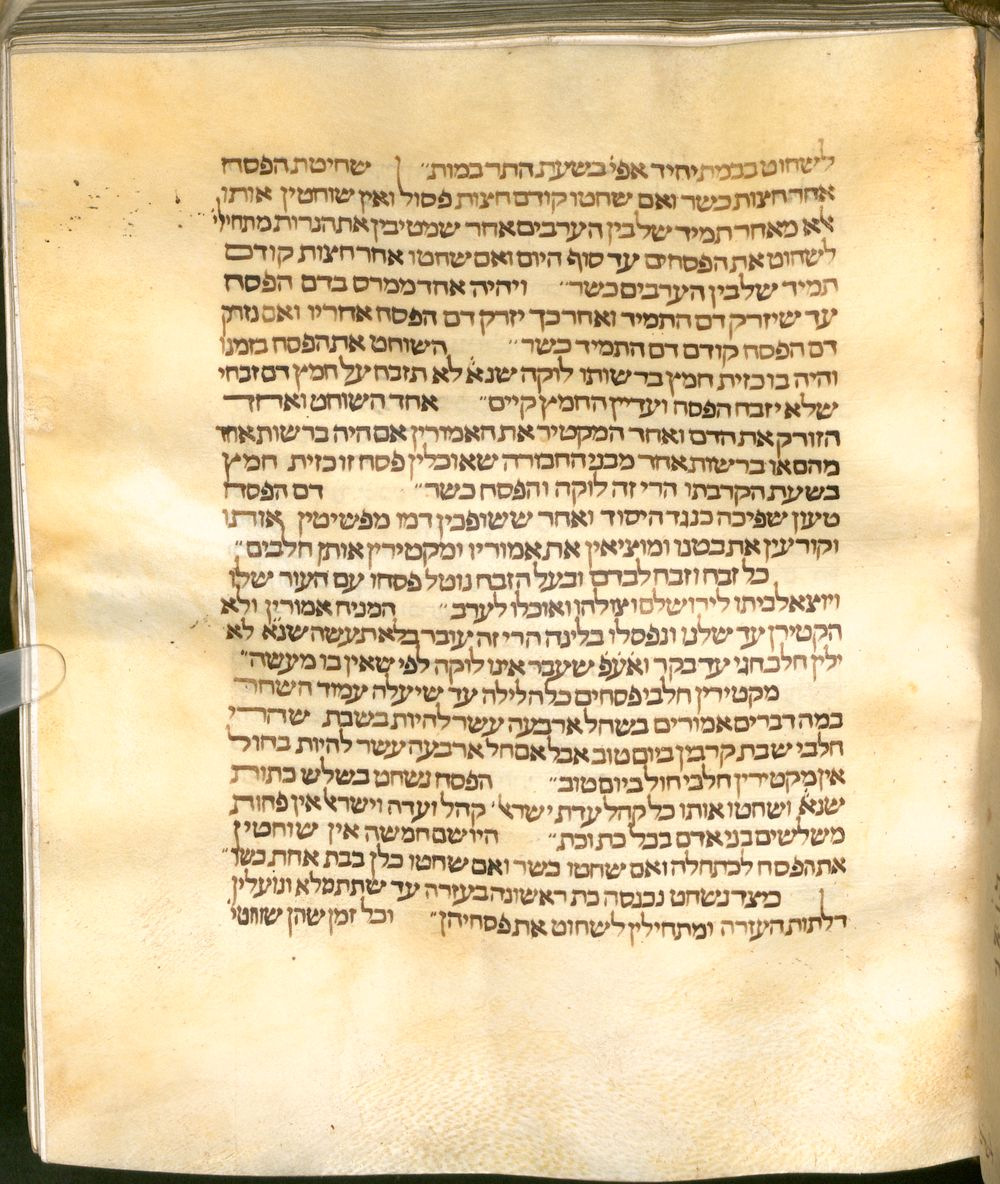 לשחוט בבמת יחיד אפי׳ בשעת התר במות״ שחיטת הפסח
אחר חצות כשר ואם שחטו קודם חצות פסול ואין שוחטין אותו
לא מאחר תמיד שלבין הערבים אחר שמטיבין את הנרות מתחילי׳
לשחוט את הפסחים עד סוף היום ואם שחטו אחר חצות קודם
תמיד שלבין הערבים כשר״ ויהיה אחד ממרס בדם הפסח
עד שיזרק דם התמיד ואחר כך יזרק דם הפסח אחריו ואם נזרק
דם הפסח קודם דם התמיד כשר״ השוחט את הפסח בזמנו
והיה בו כזית חמץ ברשותו לוקה שנא׳ לא תזבח על חמץ דם זבחי
שלא יזבח הפסח ועדיין החמץ קיים״ אחד השוחט ואחד
הזורק את הדם ואחד המקטיר את האמורין אם היה ברשות אחד
מהם או ברשות אחד מבני החבורה שאוכלין פסח זו כזית חמץ
בשעת הקרבתו הרי זה לוקה והפסח כשר״ דם הפסח
טעון שפיכה כנגד היסוד ואחר ששופכין דמו מפשיטין אותו
וקורעין את בטנו ומוציאין את אמוריו ומקטירין אותן חלבים״
כל זבח וזבח לבדם ובעל הזבח נוטל פסחו עם העור שלו
ויוצא לביתו לירושלם וצולהן ואוכלו לערב״ המניח אמורין ולא
הקטירן עד שלנו ונפסלו בלינה הרי זה עובר בלא תעשה שנא׳ לא
ילין חלב חגי עד בקר ואע״פ שעבר אינו לוקה לפי שאין בו מעשה״
מקטירין חלבי פסחים כל הלילה עד שיעלה עמוד השחר
במה דברים אמורים בשחל ארבעה עשר להיות בשבת שהרי
חלבי שבת קרבין ביום טוב אבל אם חל ארבעה עשר להיות בחול
אין מקטירין חלבי חול ביום טוב״ הפסח נשחט בשלש כתות
שנא׳ ושחטו אותו כל קהל עדת ישראל׳ קהל ועדה וישראל אין פחות
משלשים בני אדם בכל כת וכת״ היו שם חמשה אין שוחטין
את הפסח לכתחלה ואם שחטו כשר ואם שחטו כלן בבת אחת כשר״
כיצד נשחט נכנסה כת ראשונה בעזרה עד שתתמלא ונועלין
דלתות העזרה ומתחילין לשחוט את פסחיהן״ וכל זמן שהן שוחטי׳